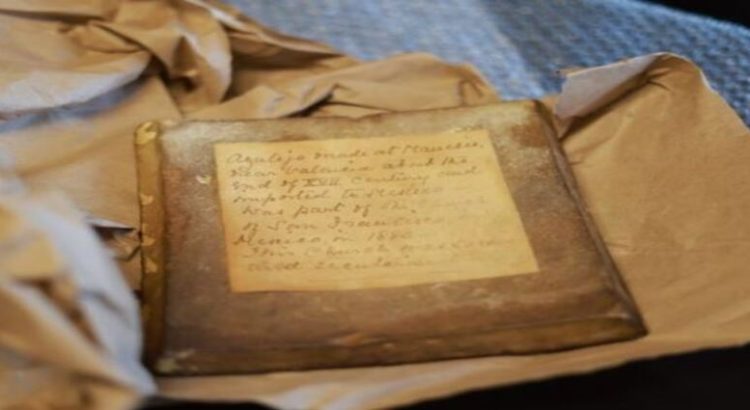 Azulejo made at Manises,
near Valencia about the
End of XVII Century and
imported to Mexico
Was part of the
of San Francisco,
Mexico, in 16
This Church was